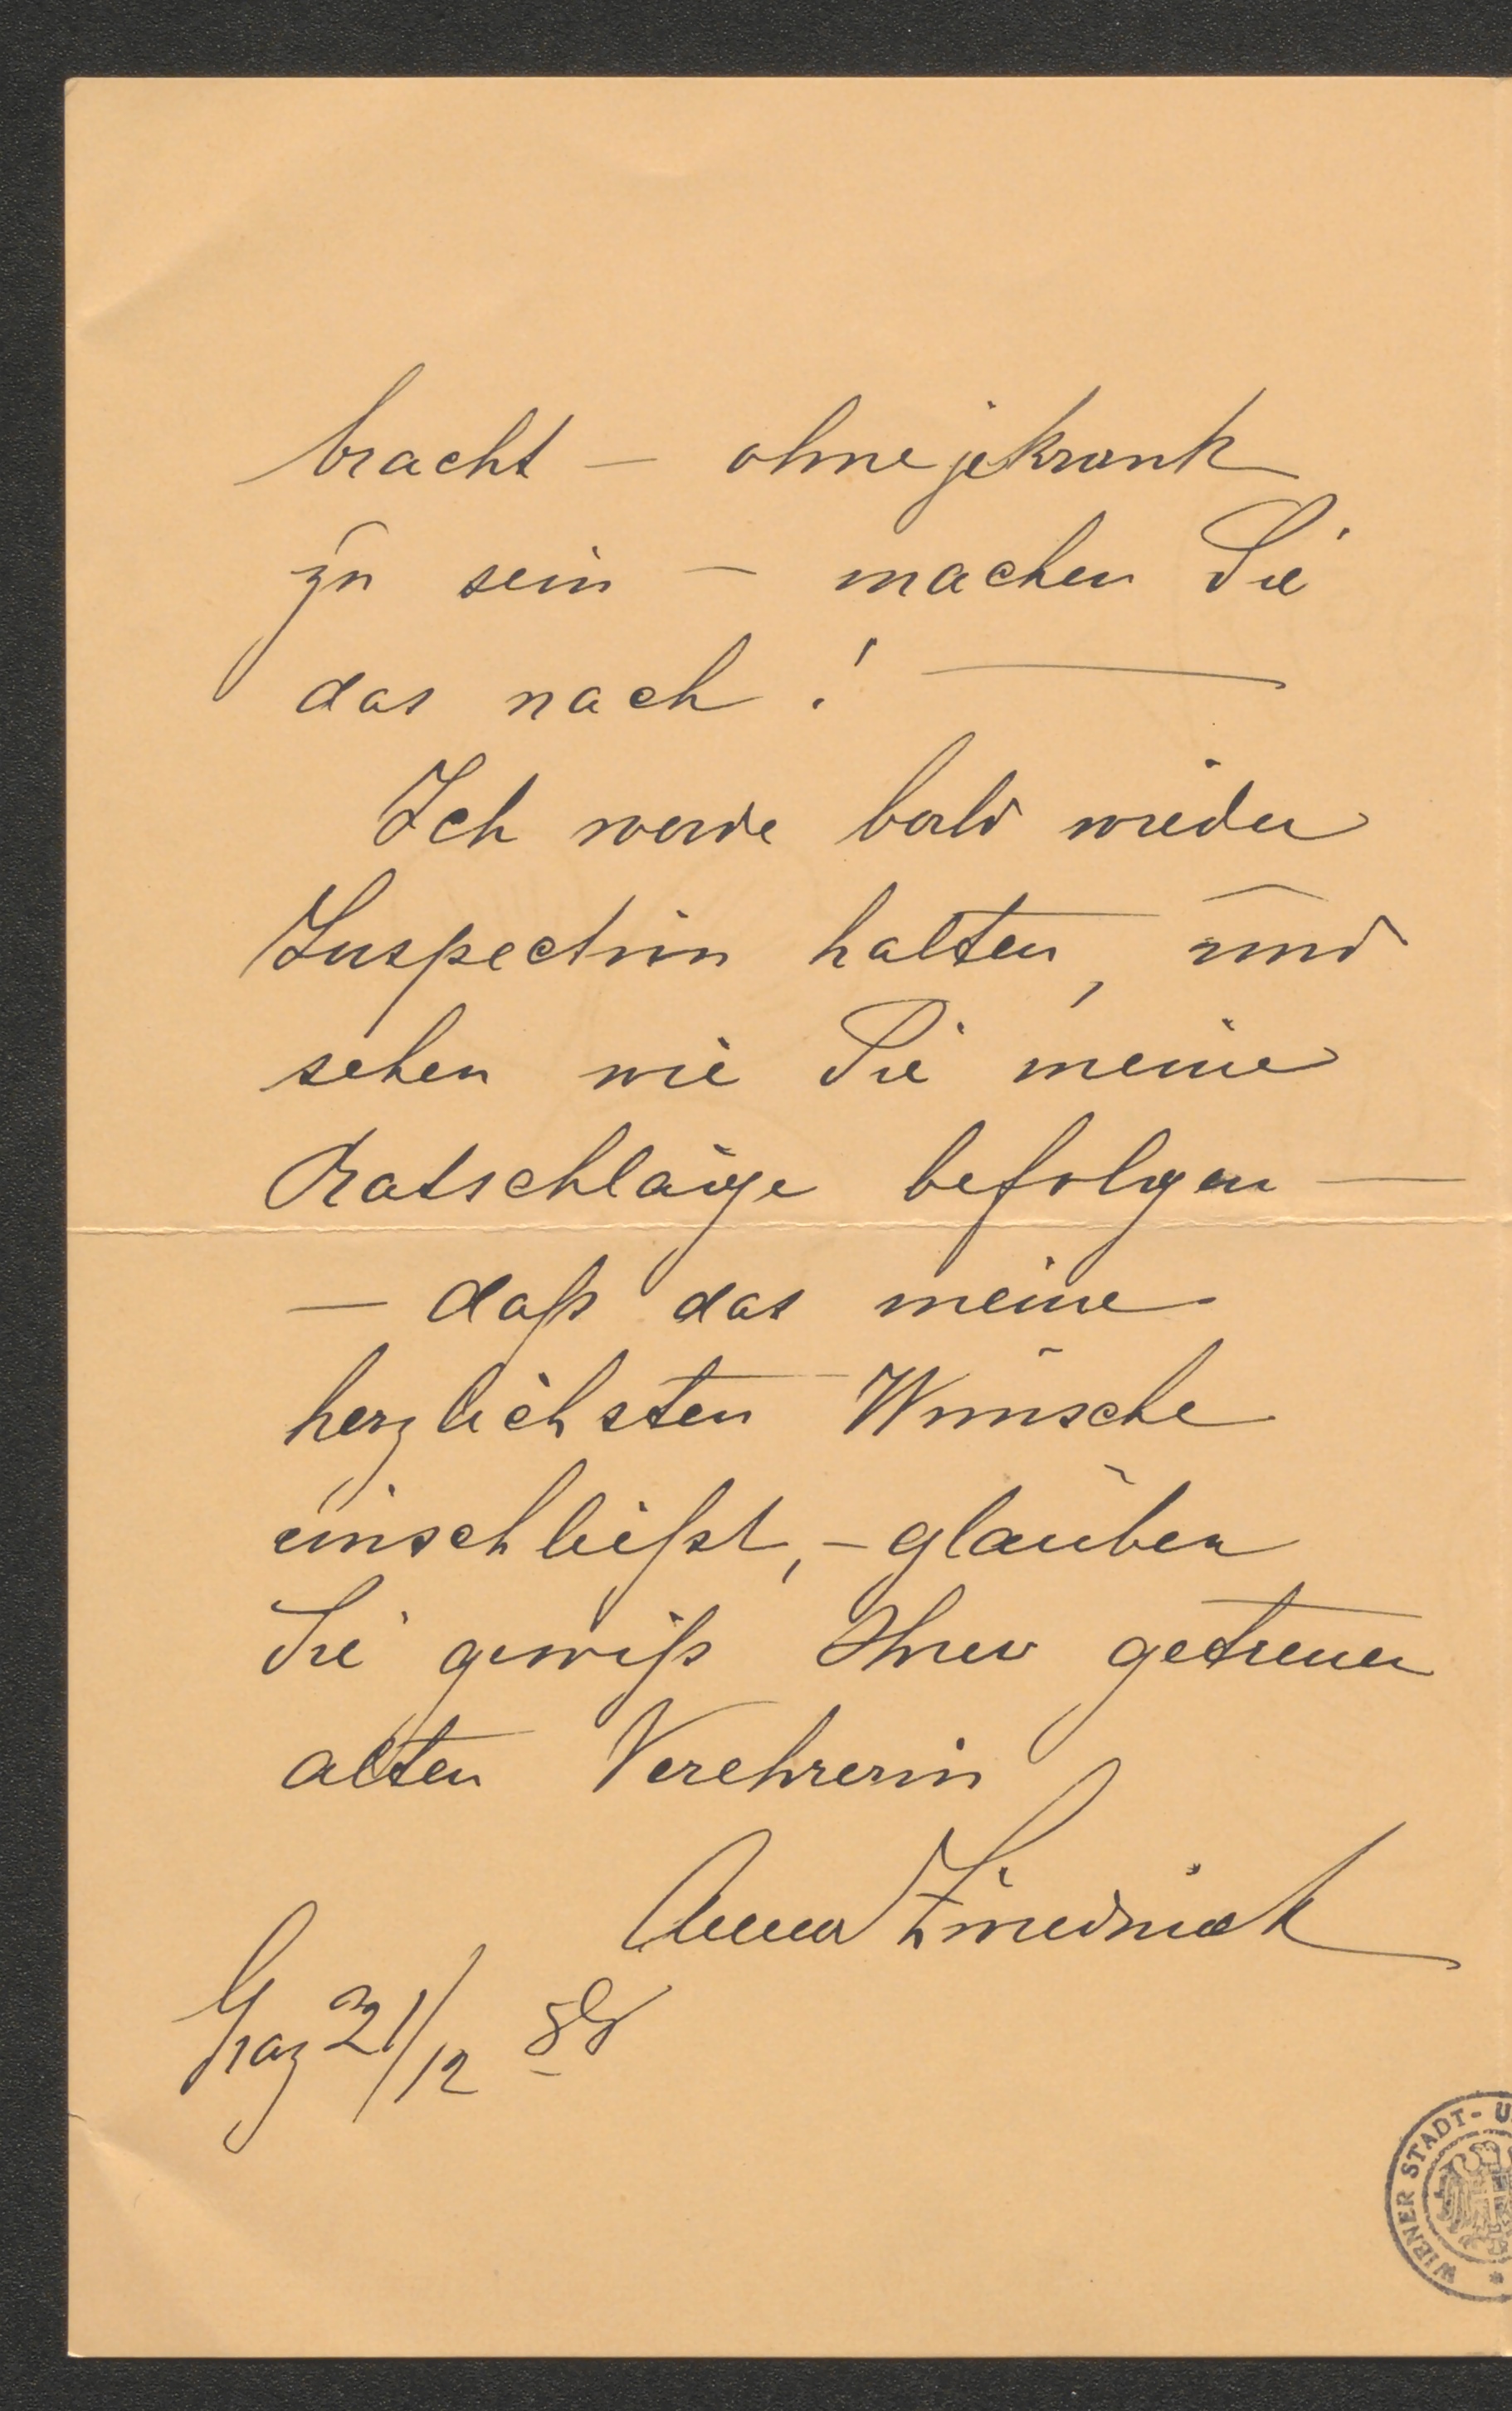 bracht — ohne je krank
zu sein — machen Sie
das nach! —
Ich werde bald wieder
Inspection halten, und
sehen wie Sie meine
Ratschläge befolgen —
— daß das meine
herzlichsten Wünsche
einschließt, – glauben
Sie gewiß Ihrer getreuen
alten Verehrerin
Anna
Graz 21/12 88
WIENER STADT- U